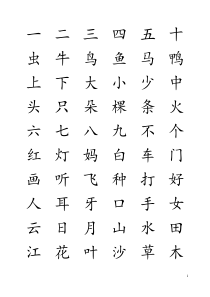 一 二 三 四 五 十
虫 牛 鸟 鱼 马 鸭
上 下 大 小 少 中
头 只 朵 棵 条 火
六 七 八 九 不 个
红 灯 妈 白 车 门
画 听 飞 种 打 好
人 耳 牙 口 手 女
云 日 月 山 水 田
江 花 叶 沙 草 木